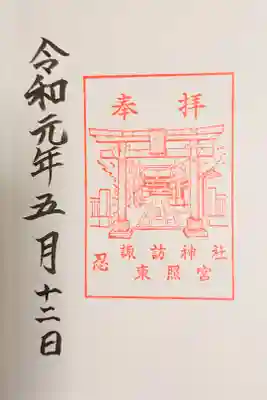 奉拝
諏訪神社
忍 東照宮
令和元年五月十二日